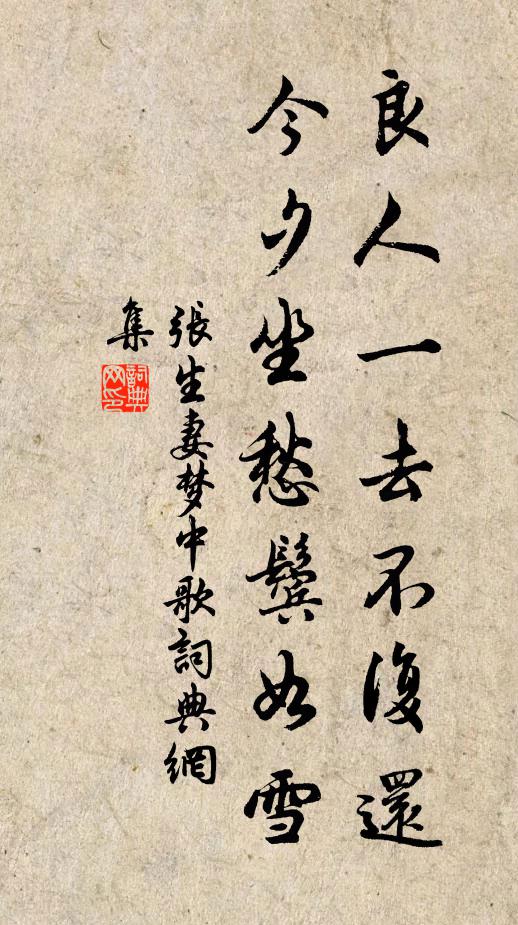 良人一去不復還
今夕坐愁鬢如雪
張生妻梦中歌詞典網
集
詞典
网印